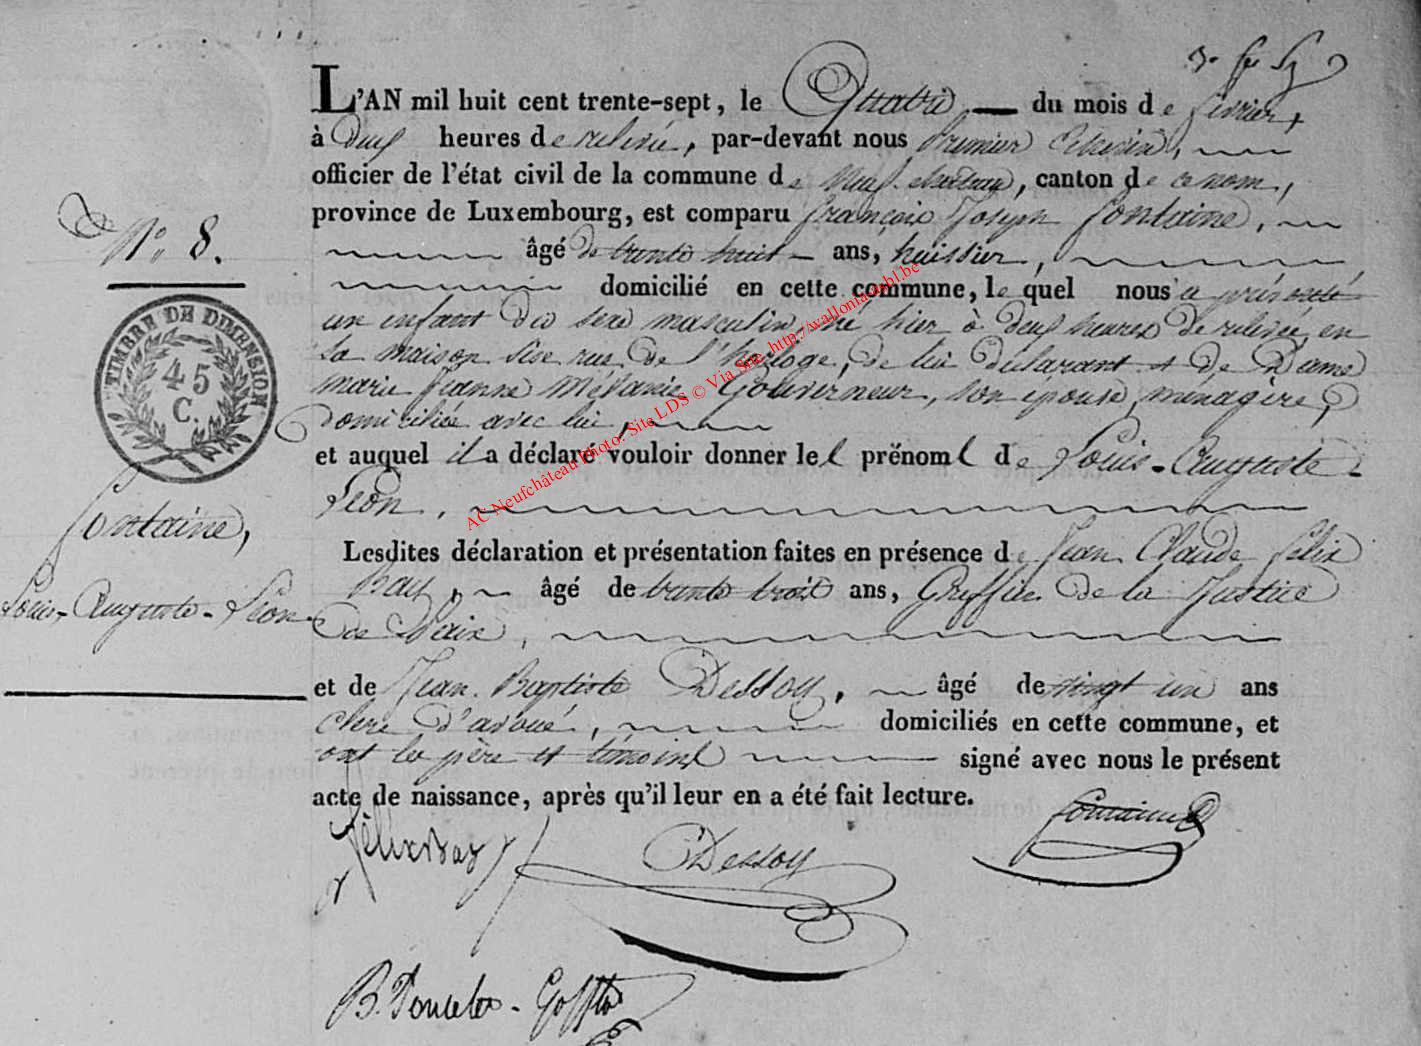 L'AN mil huit cent trente-sept, le Quatre — du mois de février,
à deux heures de relevée, par-devant nous Premier Echevin,
officier de l'état civil de la commune de Neufchateau, canton de ce nom,
province de Luxembourg, est comparu françois Joseph fontaine,
N.o 8.
âgé de trente huit — ans, huissier,
domicilié en cette commune, le quel nous a présenté
un enfant du sexe masculin, né hier à deux heures de relevée, en
sa maison sise rue de l'horloge, de lui déclarant et de Dame
marie Jeanne Mélanie Gouverneur, son épouse, ménagère,
domiciliée avec lui,
TIMBRE DE DIMENSION
45
C.
et auquel il a déclaré vouloir donner les prénoms de Louis-Auguste-
Léon,
fontaine,
Louis-Auguste-Léon
Lesdites déclaration et présentation faites en présence de Jean Claude félix
âgé de trente trois ans, Greffier de la Justice
de Paix,
et de Jean Baptiste Dessoy, âgé de vingt un ans
clerc d'avoué, domiciliés en cette commune, et
ont les père et témoins signé avec nous le présent
acte de naissance, après qu'il leur en a été fait lecture.
fontaine
Dessoy
AC Neufchâteau Photo. Site LDS © Via Site http://wallonia.asbl.be